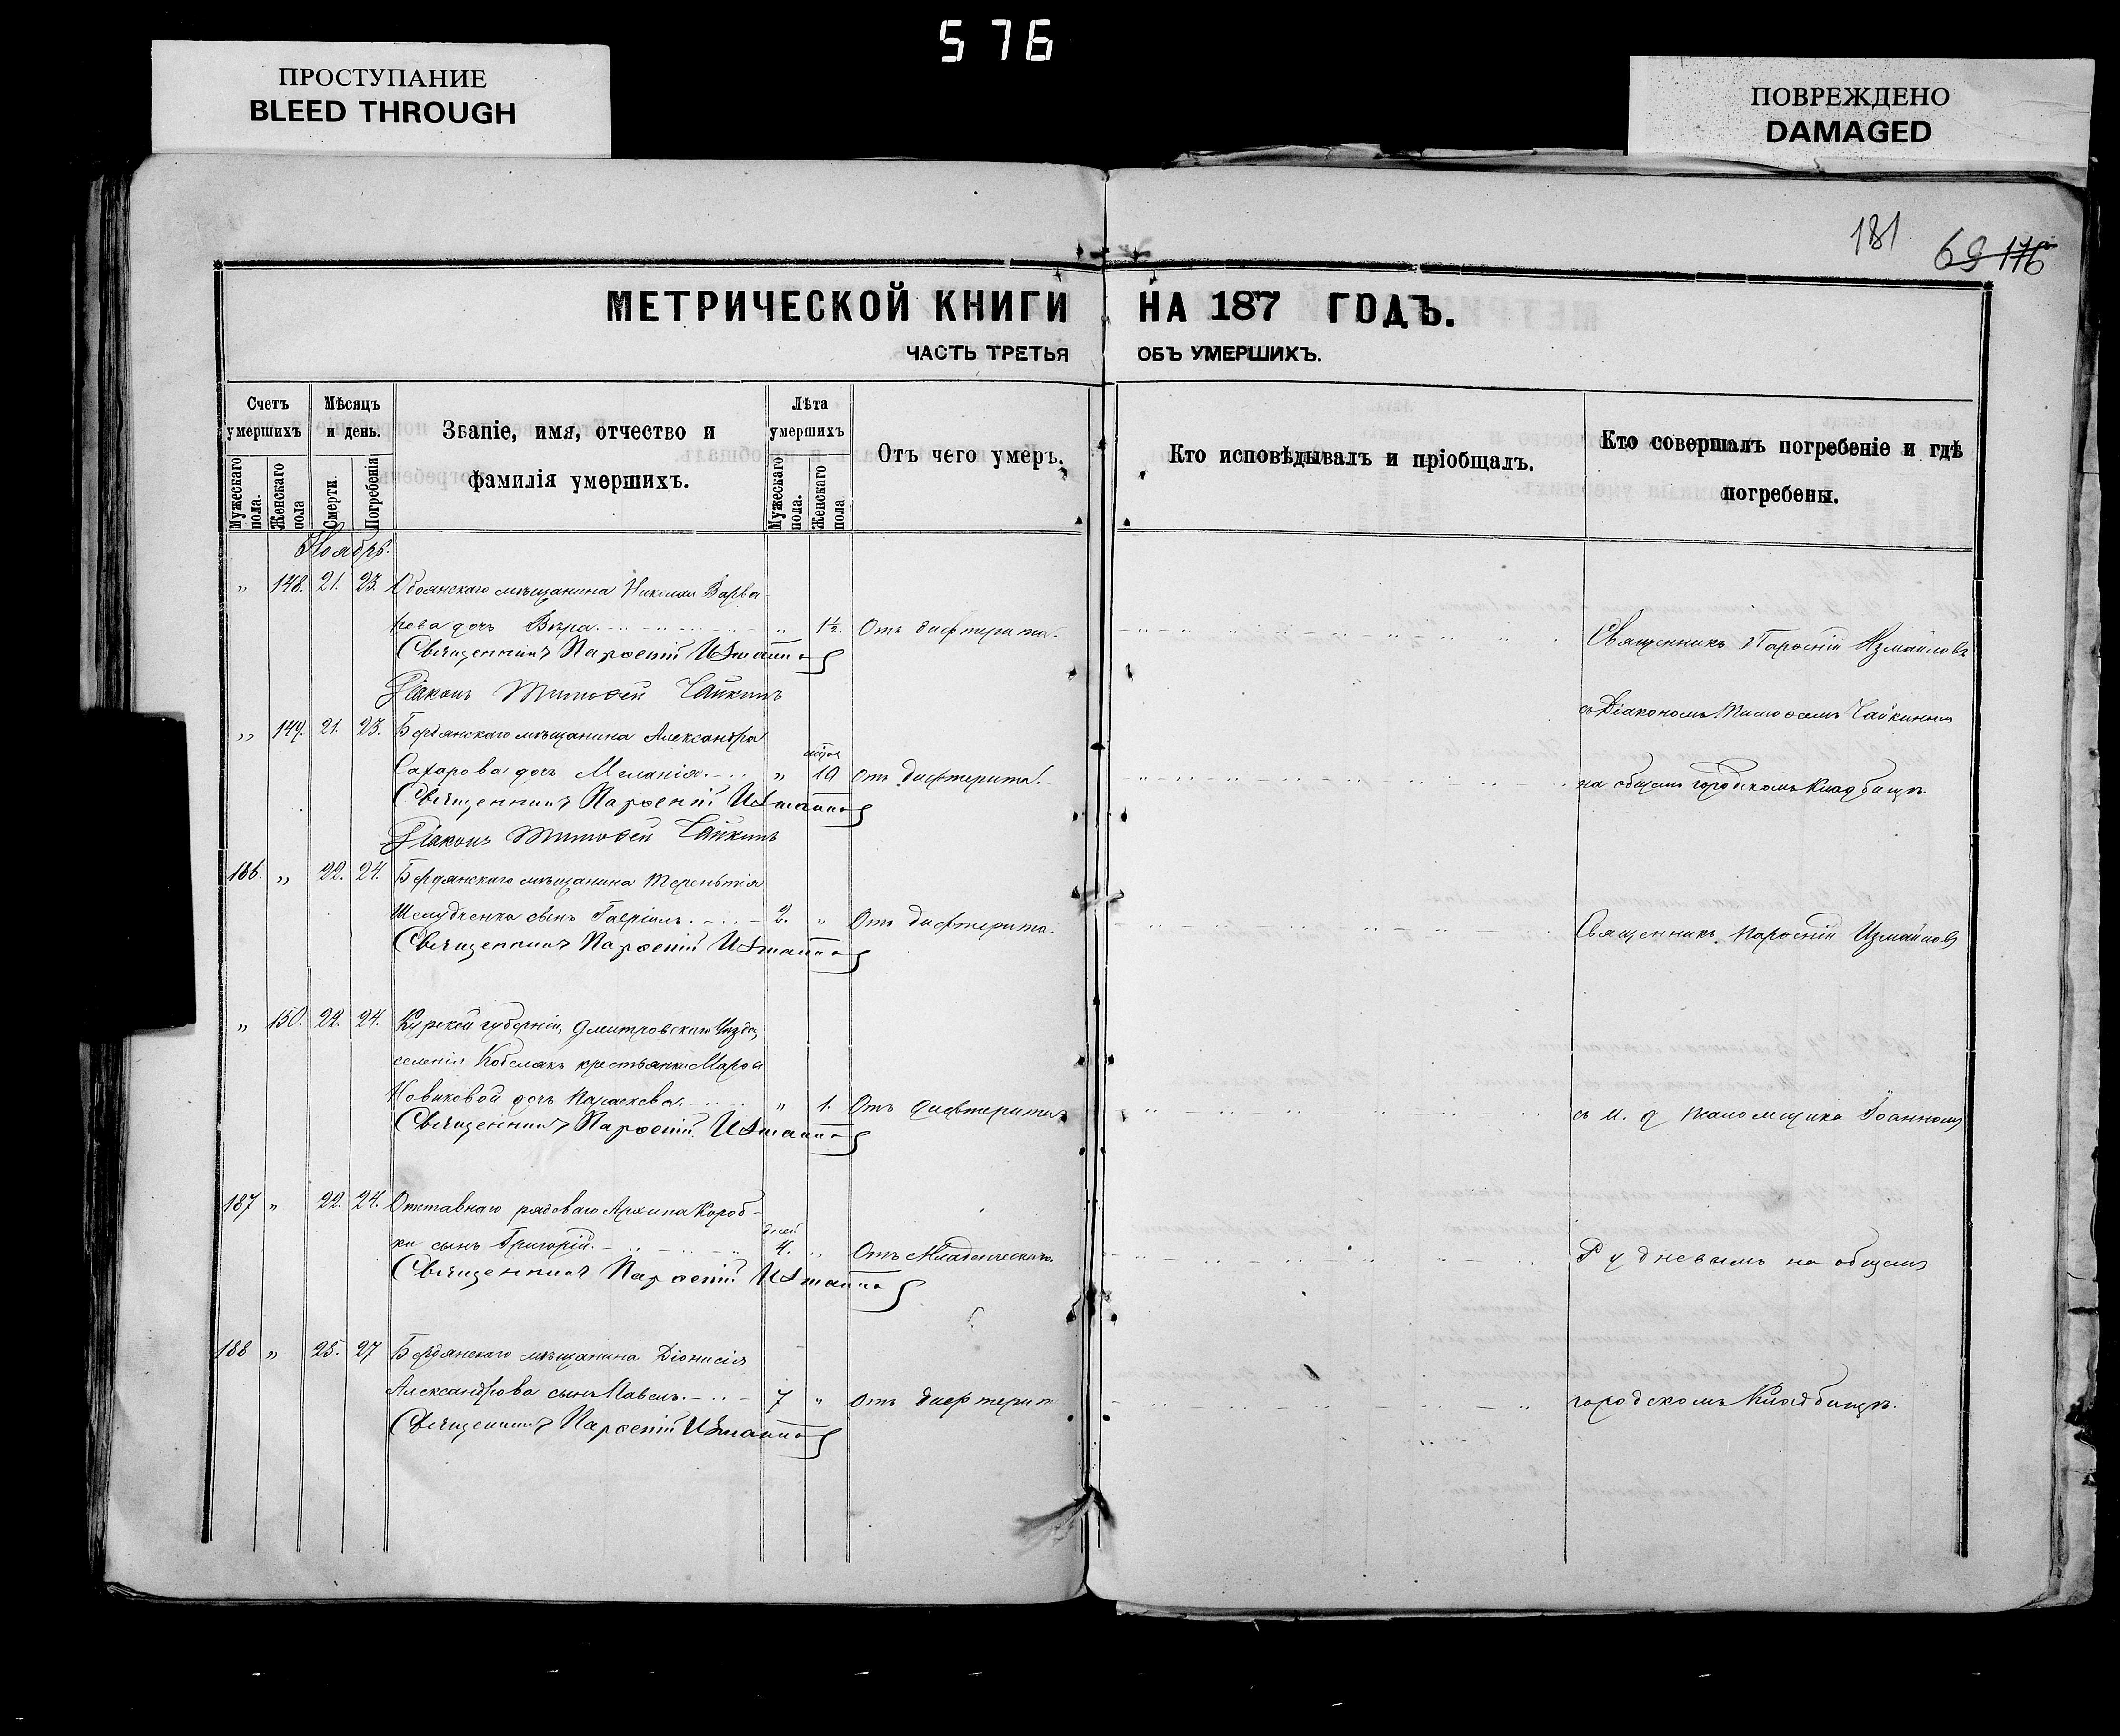 576
ПРОСТУПАНИЕ
BLEED THROUGH
ПОВРЕЖДЕНО
DAMAGED
181
69 176
МЕТРИЧЕСКОЙ КНИГИ НА 187 ГОДЪ.
ЧАСТЬ ТРЕТЬЯ ОБЪ УМЕРШИХЪ.
Счетъ умершихъ
Мужескаго пола.
Женскаго пола
Мѣсяцъ и день.
Смерти.
Погребенія
Званіе, имя, отчество и
фамилія умершихъ.
Лѣта умершихъ
Мужескаго пола.
Женскаго пола
Отъ чего умеръ.
Кто исповѣдывалъ и пріобщалъ.
Кто совершалъ погребеніе и гдѣ
погребены.
Ноябрь.
„ 148. 21. 23. Обоянскаго мѣщанина Николая Варва-
рова дочь Вѣра. „ 1½. Отъ дифтерита.
Священникъ Парѳеній Измаиловъ
Діаконъ Тимоѳей Чайкинъ
Священникъ Парѳеній Измаиловъ
съ Діакономъ Тимоѳеемъ Чайкинымъ
„ 149. 21. 23. Бердянскаго мѣщанина Александра
Сахарова дочь Меланія. „ 10 Отъ дифтерита.
на общемъ городскомъ кладбищѣ.
Священникъ Парѳеній Измаиловъ
Діаконъ Тимоѳей Чайкинъ
186. „ 22. 24. Бердянскаго мѣщанина Терентія
Шелудченка сынъ Гавріилъ. 2. „ Отъ дифтерита.
Священникъ Парѳеній Измаиловъ
Священникъ Парѳеній Измаиловъ
„ 150. 22. 24. Курской губерніи, Дмитровскаго Уѣзда,
селенія крестьянки Марѳы
Новиковой дочь Параскева. „ 1. Отъ дифтерита
Священникъ Парѳеній Измаиловъ
съ и. д. псаломщика Іоанномъ
187 „ 22. 24. Отставнаго рядоваго Архипа Короб-
ки сынъ Григорій. дней 4. „ Отъ Младенческой.
Священникъ Парѳеній Измаиловъ
Рудневымъ на общемъ
188 „ 25. 27 Бердянскаго мѣщанина Діонисія
Александрова сынъ Павелъ. 7 „ Отъ дифтерит
Священникъ Парѳеній Измаиловъ
городскомъ Кладбищѣ.